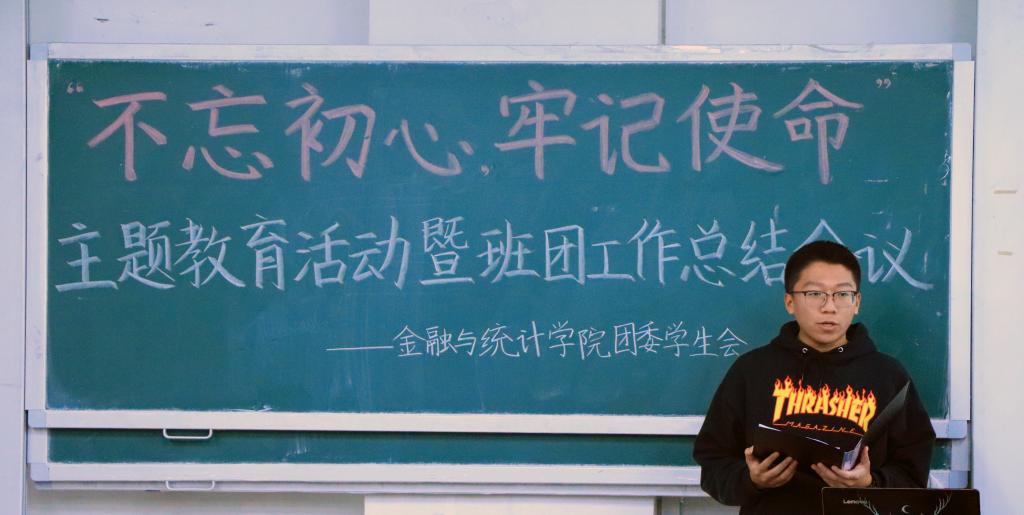 “不忘初心,牢记使命”
主题教育活动暨班团工作总结会议
——金融与统计学院团委学生会
THRASHER
MAGAZINE
Lenovo